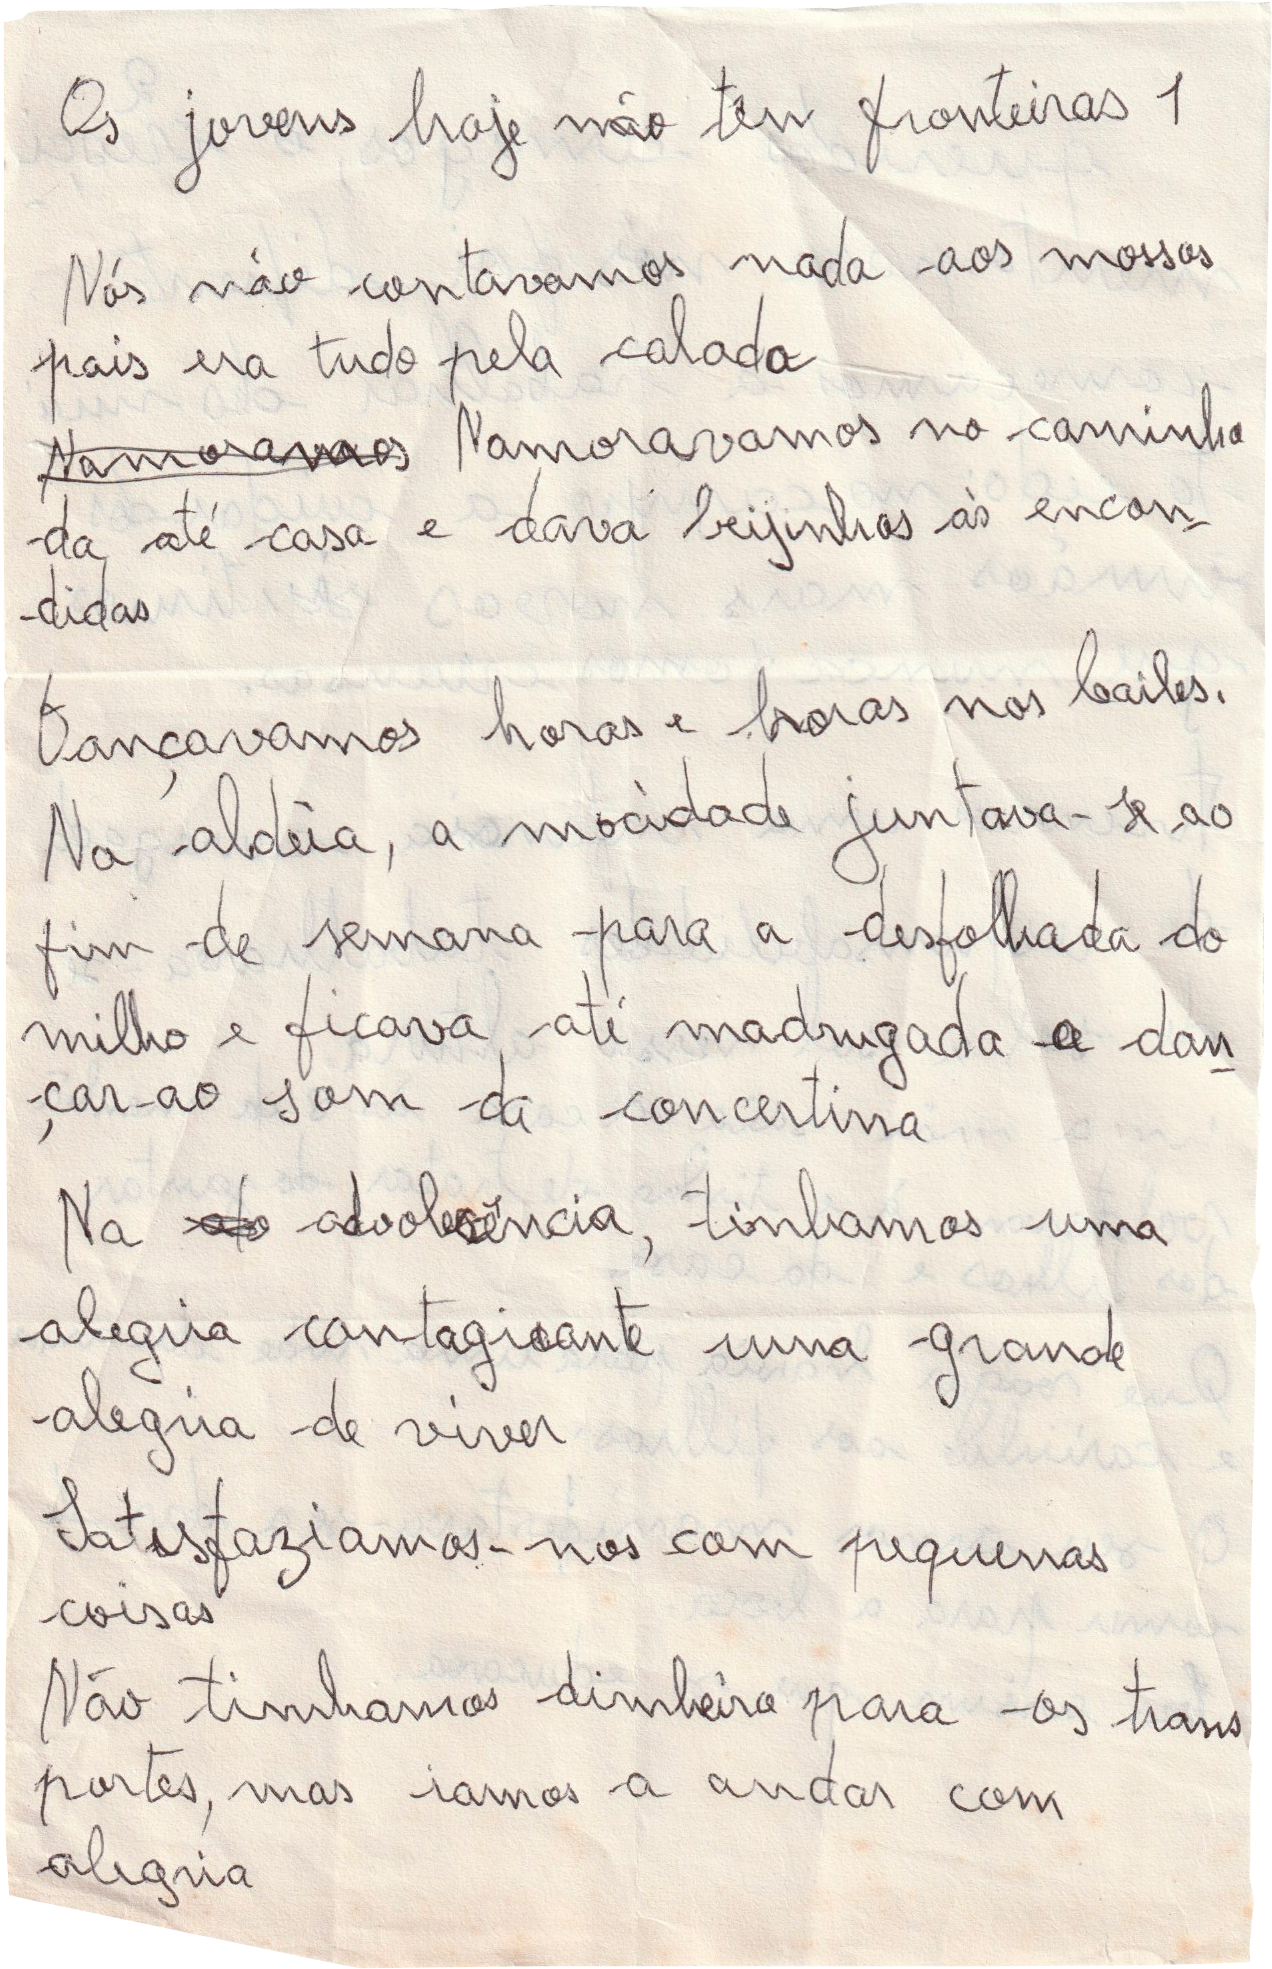 Os jovens hoje não têm fronteiras 1
Nós não contavamos nada aos nossos
pais era tudo pela calada
Namoravaos Namoravamos no caminho
da até casa e dava beijinhos às encon-
didas
Dançavamos horas e horas nos bailes.
Na aldeia, a mocidade juntava-se ao
fim de semana para a desfolhada do
milho e ficava até madrugada a dan-
çar ao som da concertina
Na adolescência, tinhamos uma
alegria contagioante uma grande
alegria de viver
Satisfaziamos-nos com pequenas
coisas
Não tinhamos dinheiro para os trans
portes, mas iamos a andar com
alegria